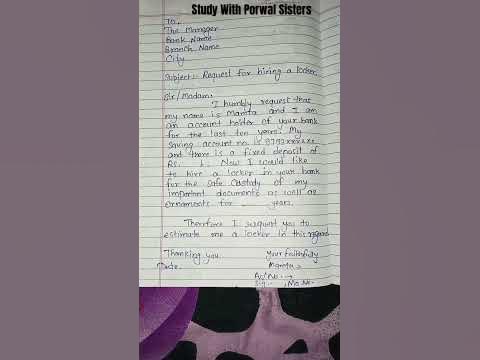 Study With Porwal Sisters
To,
The Manager
Bank Name
Branch Name
City
Subject:- Request for hiring a locker.
Sir/Madam,
I humbly request that
my name is Mamta and I am
an account holder of your bank
for the last ten years. My
saving account no. is
and there is a fixed deposit of
Rs. L. Now I would like
to hire a locker in your bank
for the safe custody of my
important documents as well as
ornaments for __ years.
Therefore I request you to
estimate me a locker in this regard
Thanking you. Your faithfully
Date. Mamta
A/c No. →
Sig. Mo. No.